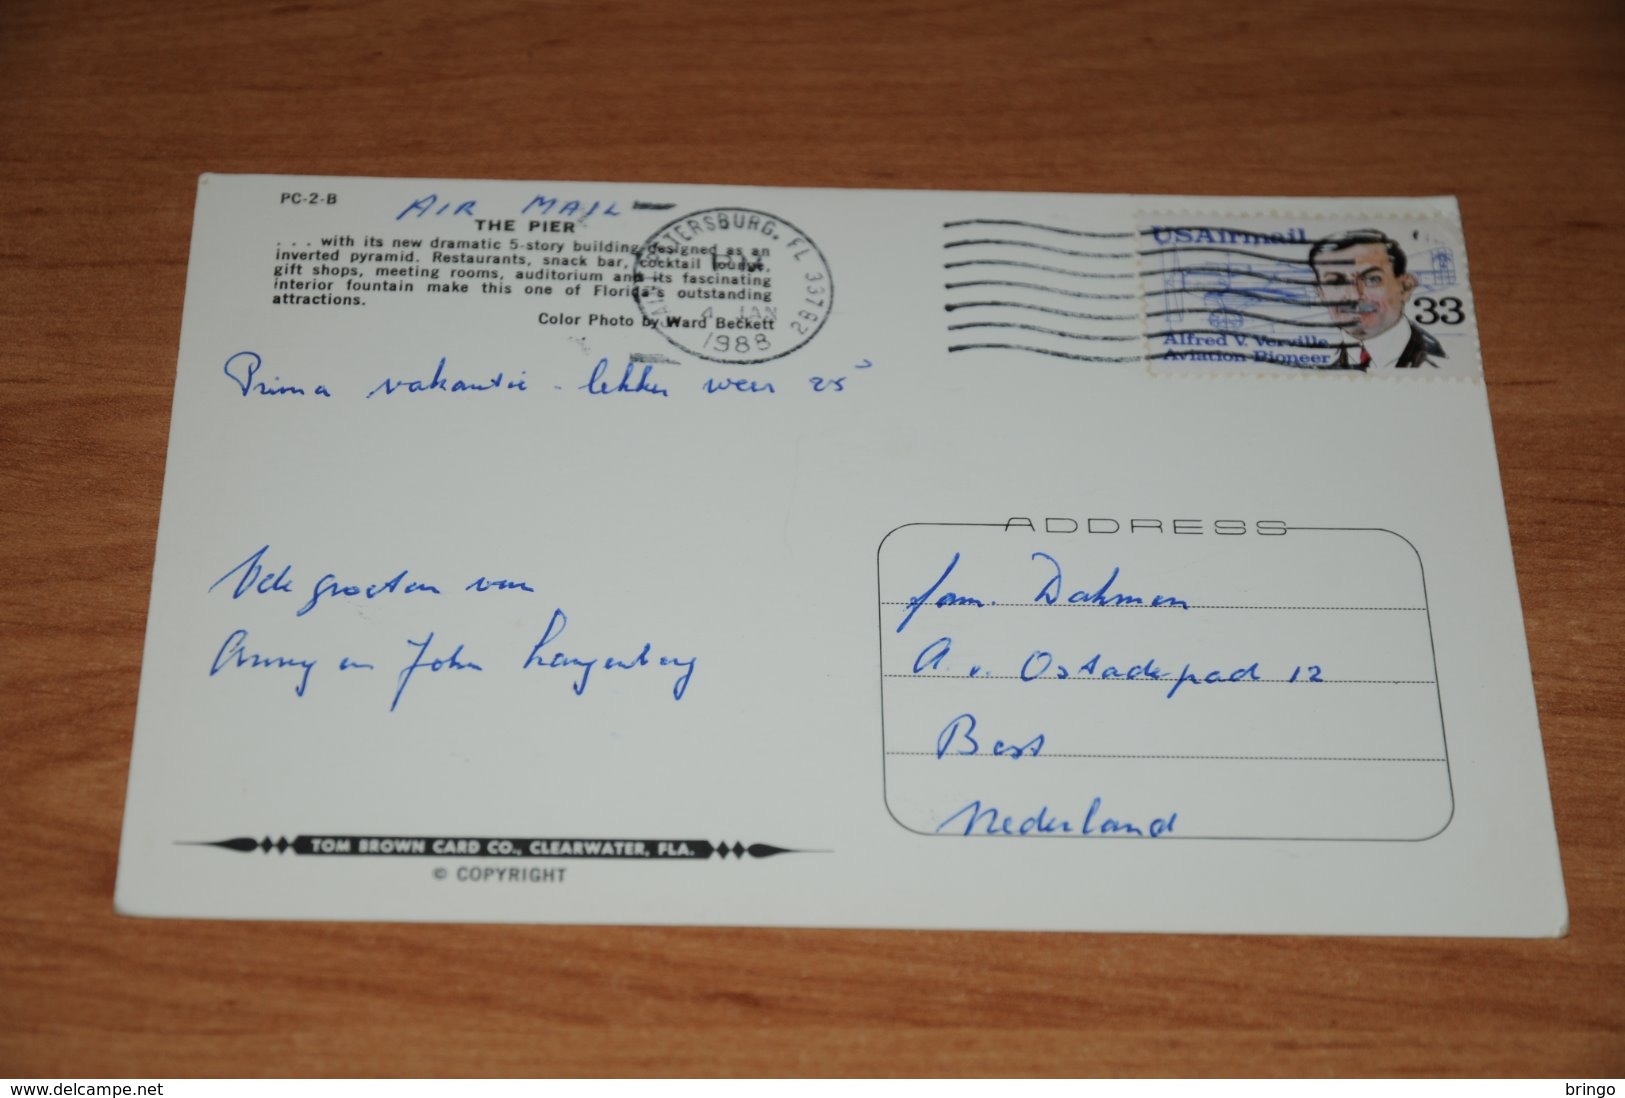 PC-2-B
AIR MAIL
THE PIER
. . . with its new dramatic 5-story building designed as an
inverted pyramid. Restaurants, snack bar, cocktail lounge,
gift shops, meeting rooms, auditorium and its fascinating
interior fountain make this one of Florida's outstanding
attractions.
Color Photo by Ward Beckett
SAINT PETERSBURG, FL 337 82
PM
4 JAN
1988
USAirmail
33
Alfred V. Verville
Aviation Pioneer
Prima vakantie - lekker weer 25°
Vele groeten van
Anny en John Langenberg
ADDRESS
fam. Dahmen
A. v. Ostadepad 12
Best
Nederland
TOM BROWN CARD CO., CLEARWATER, FLA.
© COPYRIGHT
www.delcampe.net
bringo